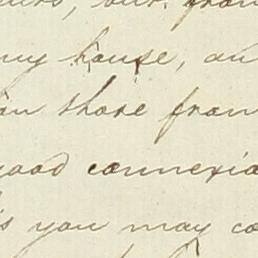 but from
my house, an
in those from
good connexio
you may co